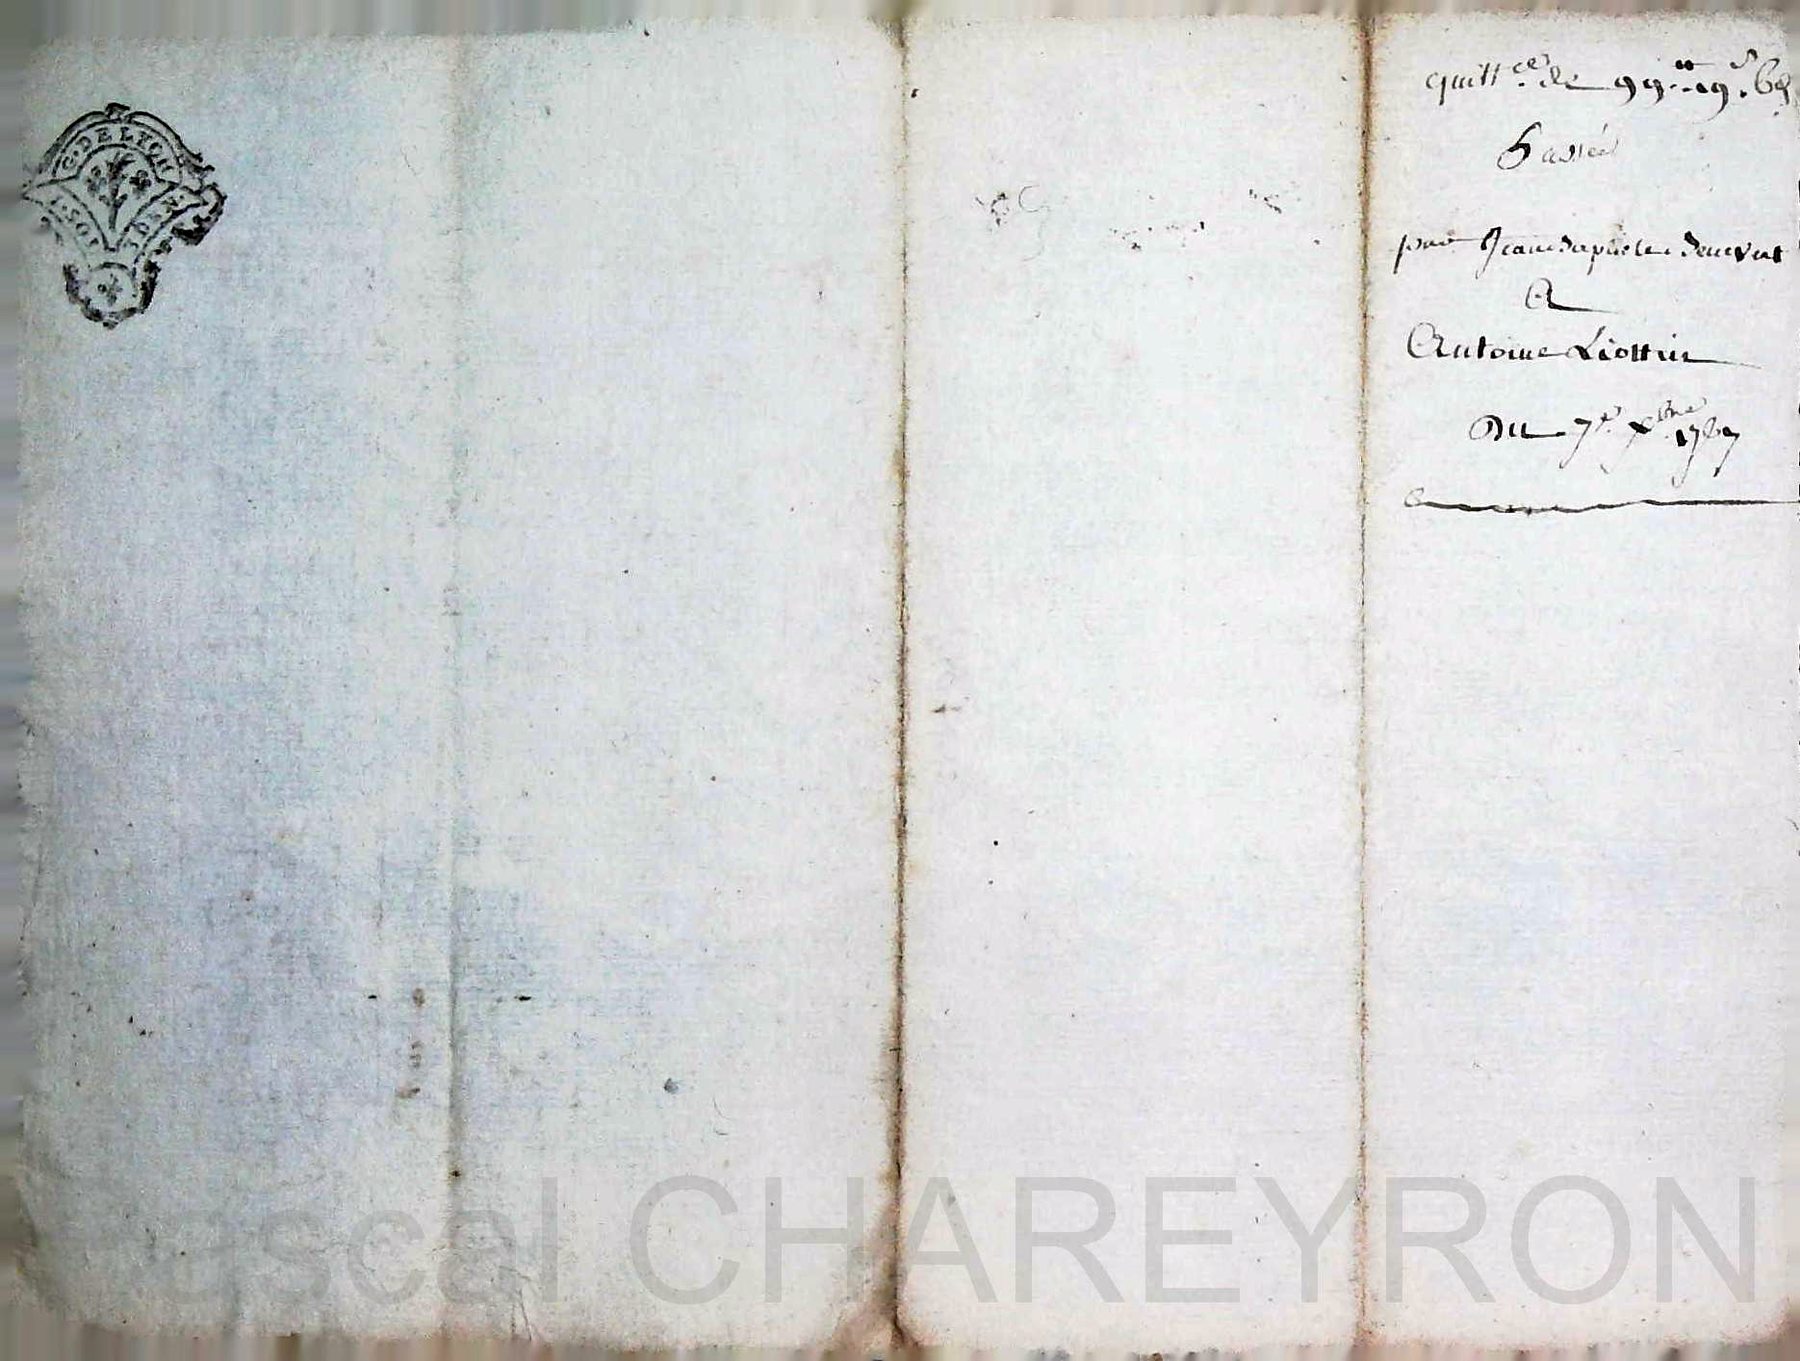 G. DE LYON
quittce de 99tt 19s 6d
Passée
par Jean Baptiste
A
Antoine Liottin
Du 7e Xbre 1767
Pascal CHAREYRON